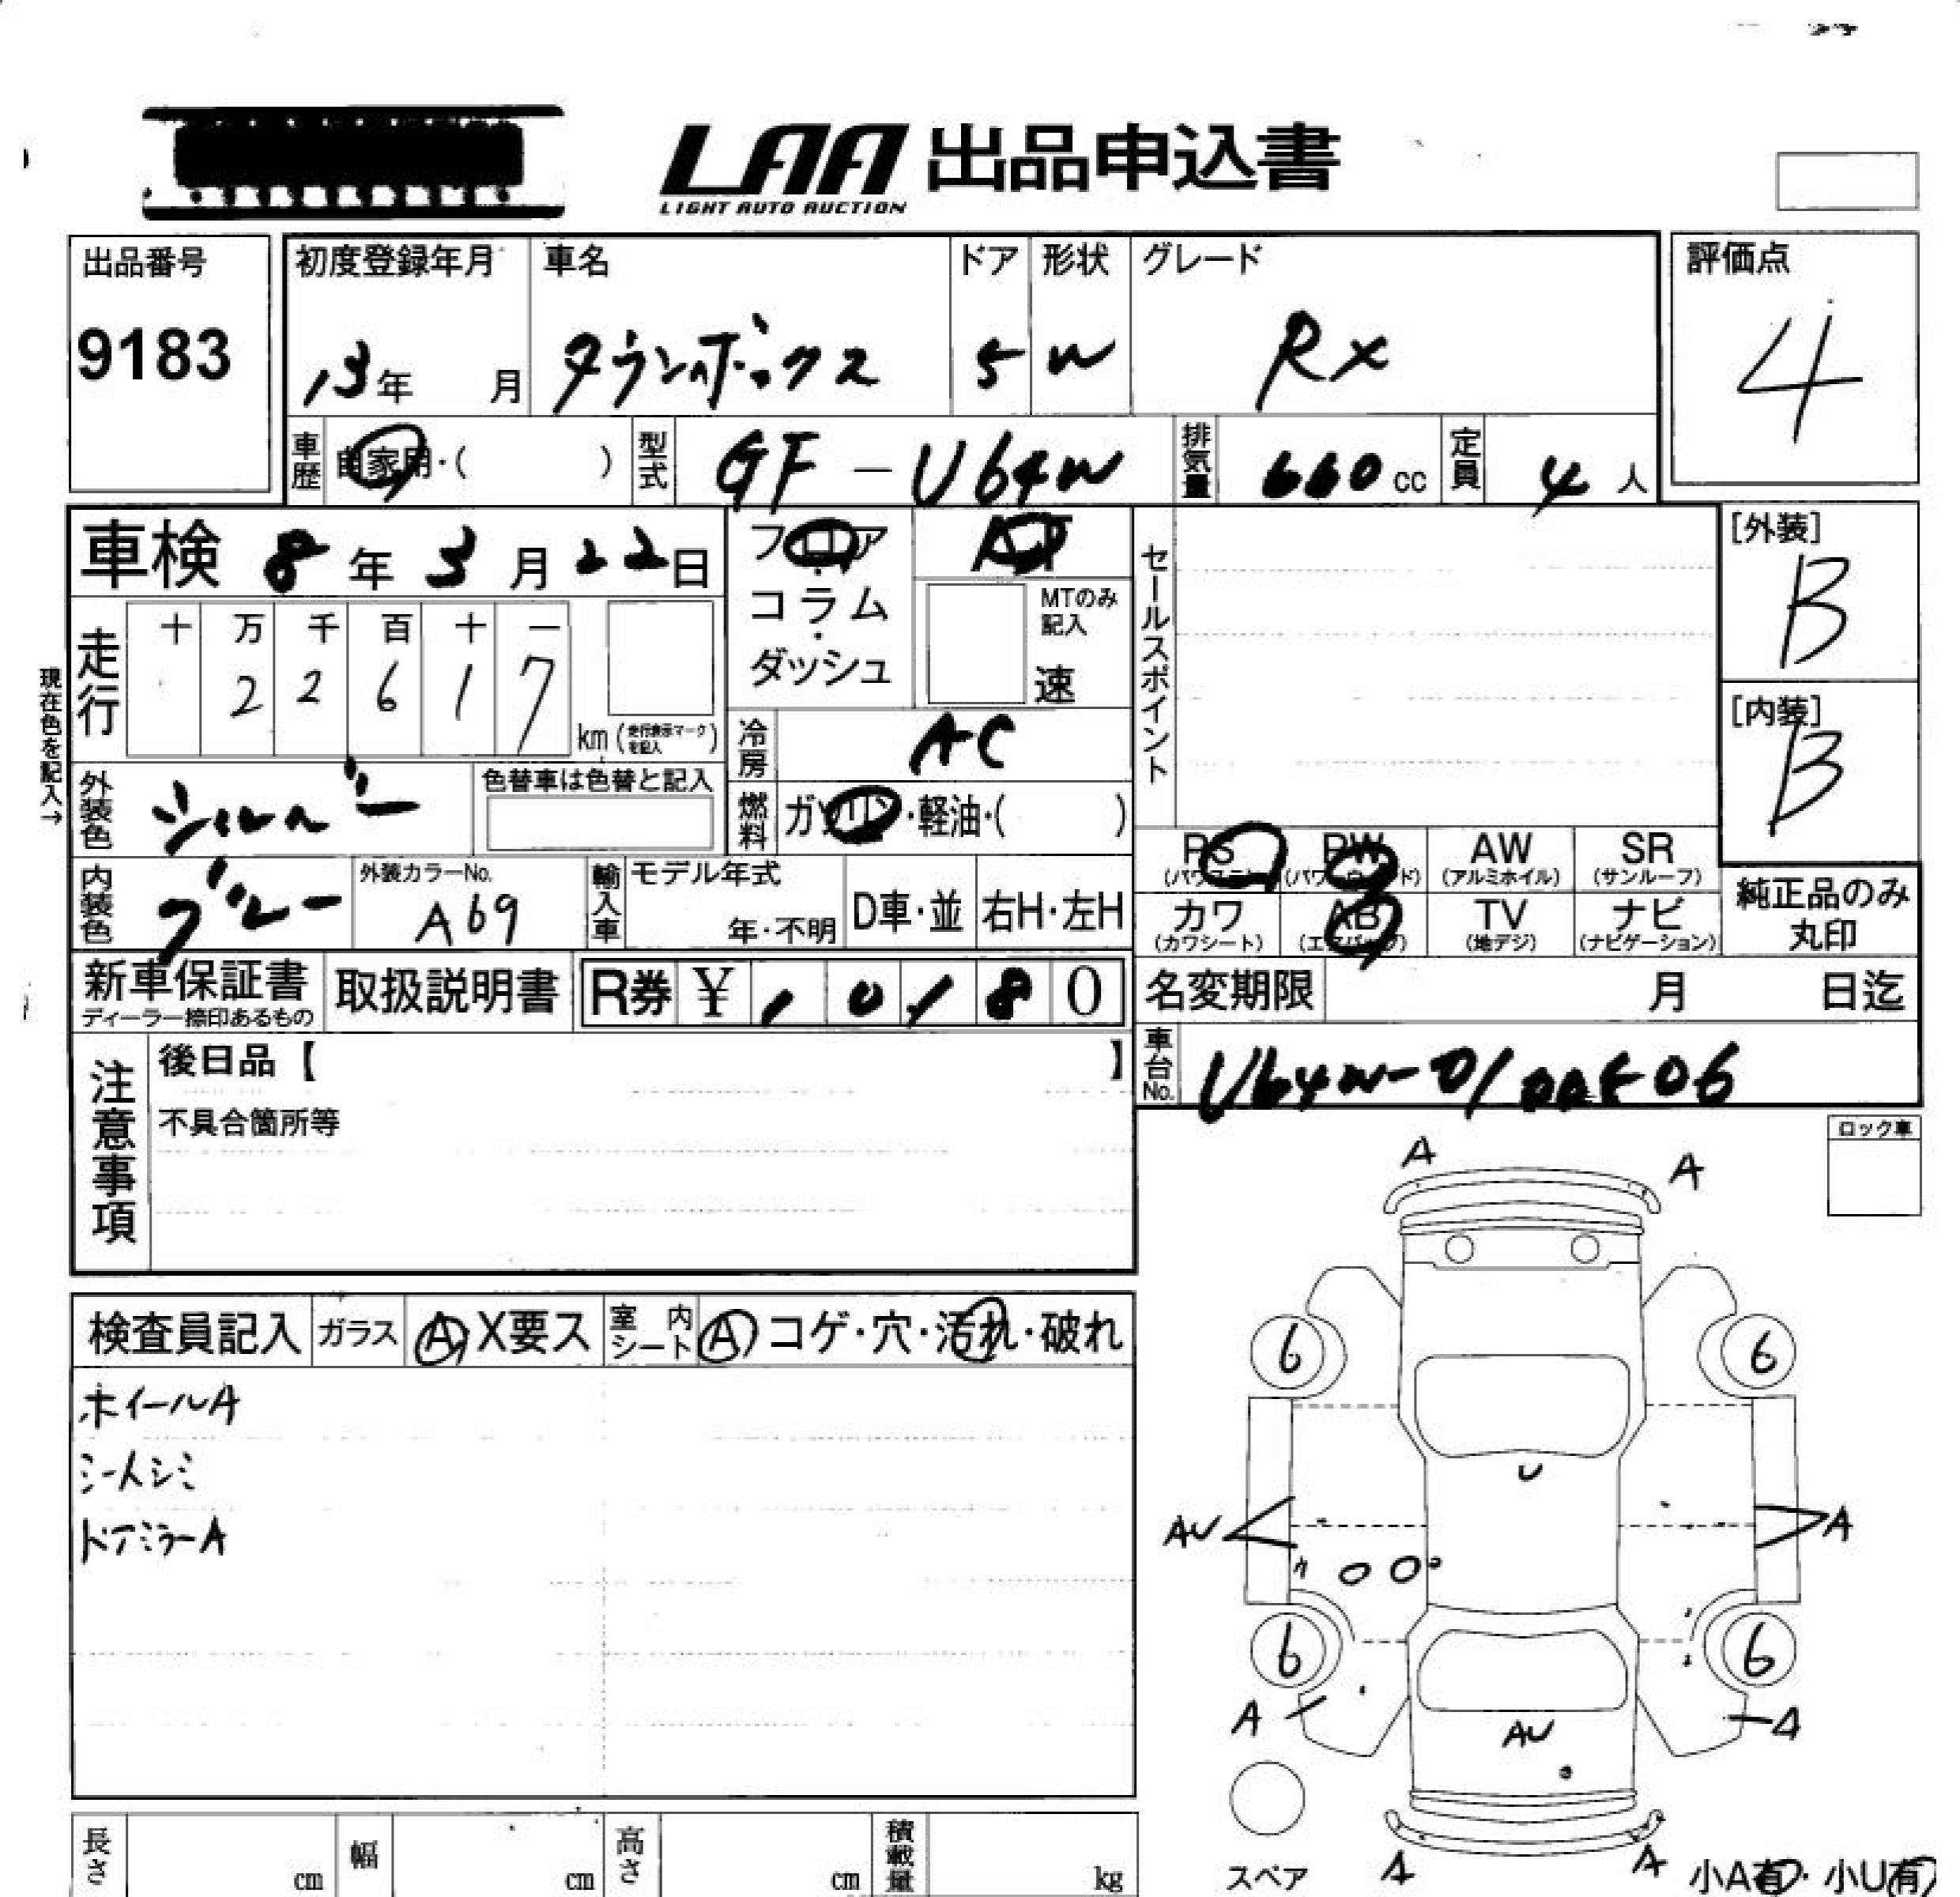 LAA 出品申込書
LIGHT AUTO AUCTION
出品番号
9183
初度登録年月
13年 月
車名
タウンボックス
ドア
5
形状
W
グレード
RX
評価点
4
車歴 自家用・( )
型式 GF-U64W
排気量 660 cc
定員 4 人
車検 8年3月22日
フロア・コラム・ダッシュ
AT
MTのみ記入
速
セールスポイント
[外装]
B
[内装]
B
現在色を記入→
走行
十 万 千 百 十 一
2 2 6 1 7
km (走行表示マークを記入)
冷房 AC
外装色 シルバー
色替車は色替と記入
燃料 ガソリン・軽油・( )
PS (パワステ) PW (パワーウィンド) AW (アルミホイル) SR (サンルーフ)
カワ (カワシート) AB (エアバッグ) TV (地デジ) ナビ (ナビゲーション)
純正品のみ丸印
内装色 グレー
外装カラーNo. A69
輸入車 モデル年式 年・不明 D車・並 右H・左H
新車保証書
ディーラー捺印あるもの
取扱説明書
R券 ¥ 1 0 1 8 0
名変期限 月 日迄
車台No. U64W-0100506
注意事項
後日品【 】
不具合箇所等
ロック車
検査員記入 ガラス A X要ス 室内シート A コゲ・穴・汚れ・破れ
ホイールA
シートシミ
ドアミラーA
A A
6 6
U
AU A
6 6
A A
AU
スペア
A A
小A有・小U有
長さ cm 幅 cm 高さ cm 積載量 kg